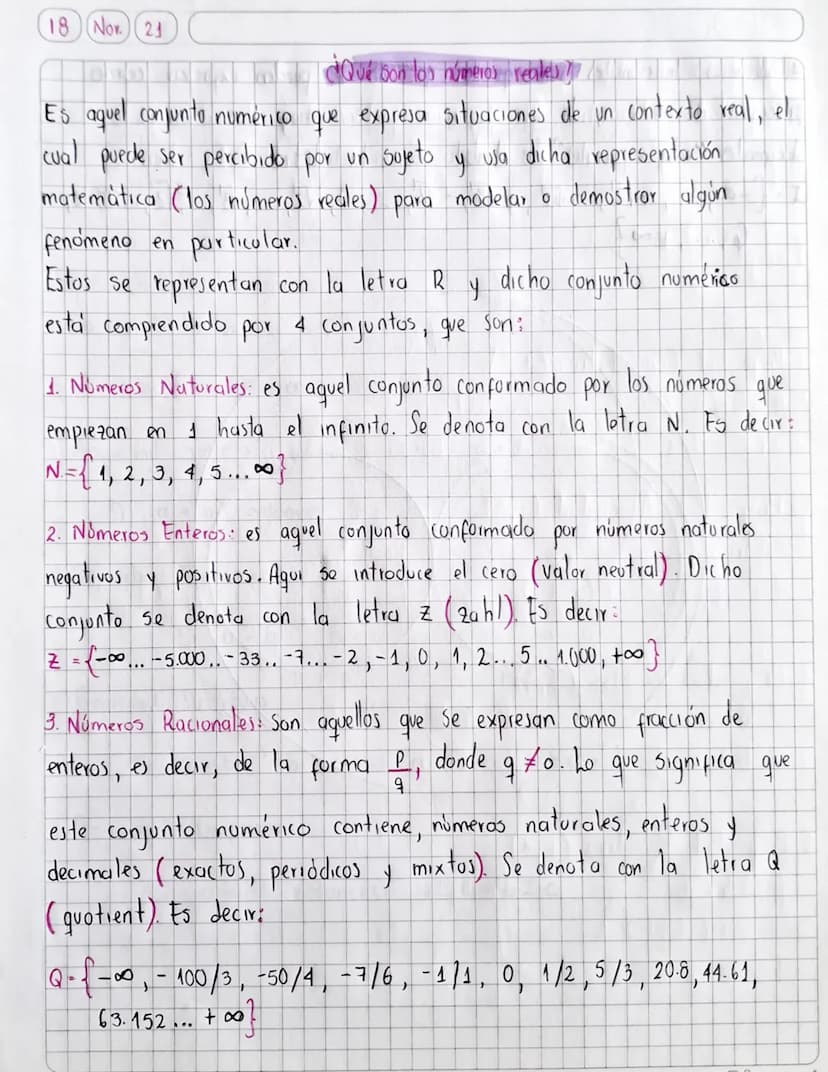 18 Nov. 21
¿Qué son los números reales?
Es aquel conjunto numérico que expresa situaciones de un contexto real, el
cual puede ser percibido por un sujeto y usa dicha representación
matemática (los números reales) para modelar o demostrar algún
fenómeno en particular.
Estos se representan con la letra R y dicho conjunto numérico
está comprendido por 4 conjuntos, que son:
1. Números Naturales: es aquel conjunto conformado por los números que
empiezan en 1 hasta el infinito. Se denota con la letra N. Es decir:
N={1, 2, 3, 4, 5... ∞}
2. Números Enteros: es aquel conjunto conformado por números naturales
negativos y positivos. Aquí se introduce el cero (valor neutral). Dicho
conjunto se denota con la letra z (zahl). Es decir:
Z ={-∞... -5.000.. -33.. -7... -2, -1, 0, 1, 2... 5.. 1.000, +∞}
3. Números Racionales: Son aquellos que se expresan como fracción de
enteros, es decir, de la forma p/q, donde q ≠ 0. Lo que significa que
este conjunto numérico contiene, números naturales, enteros y
decimales (exactos, periódicos y mixtos). Se denota con la letra Q
(quotient). Es decir:
Q={-∞, -100/3, -50/4, -7/6, -1/1, 0, 1/2, 5/3, 20.8, 44.61,
63.152... +∞}